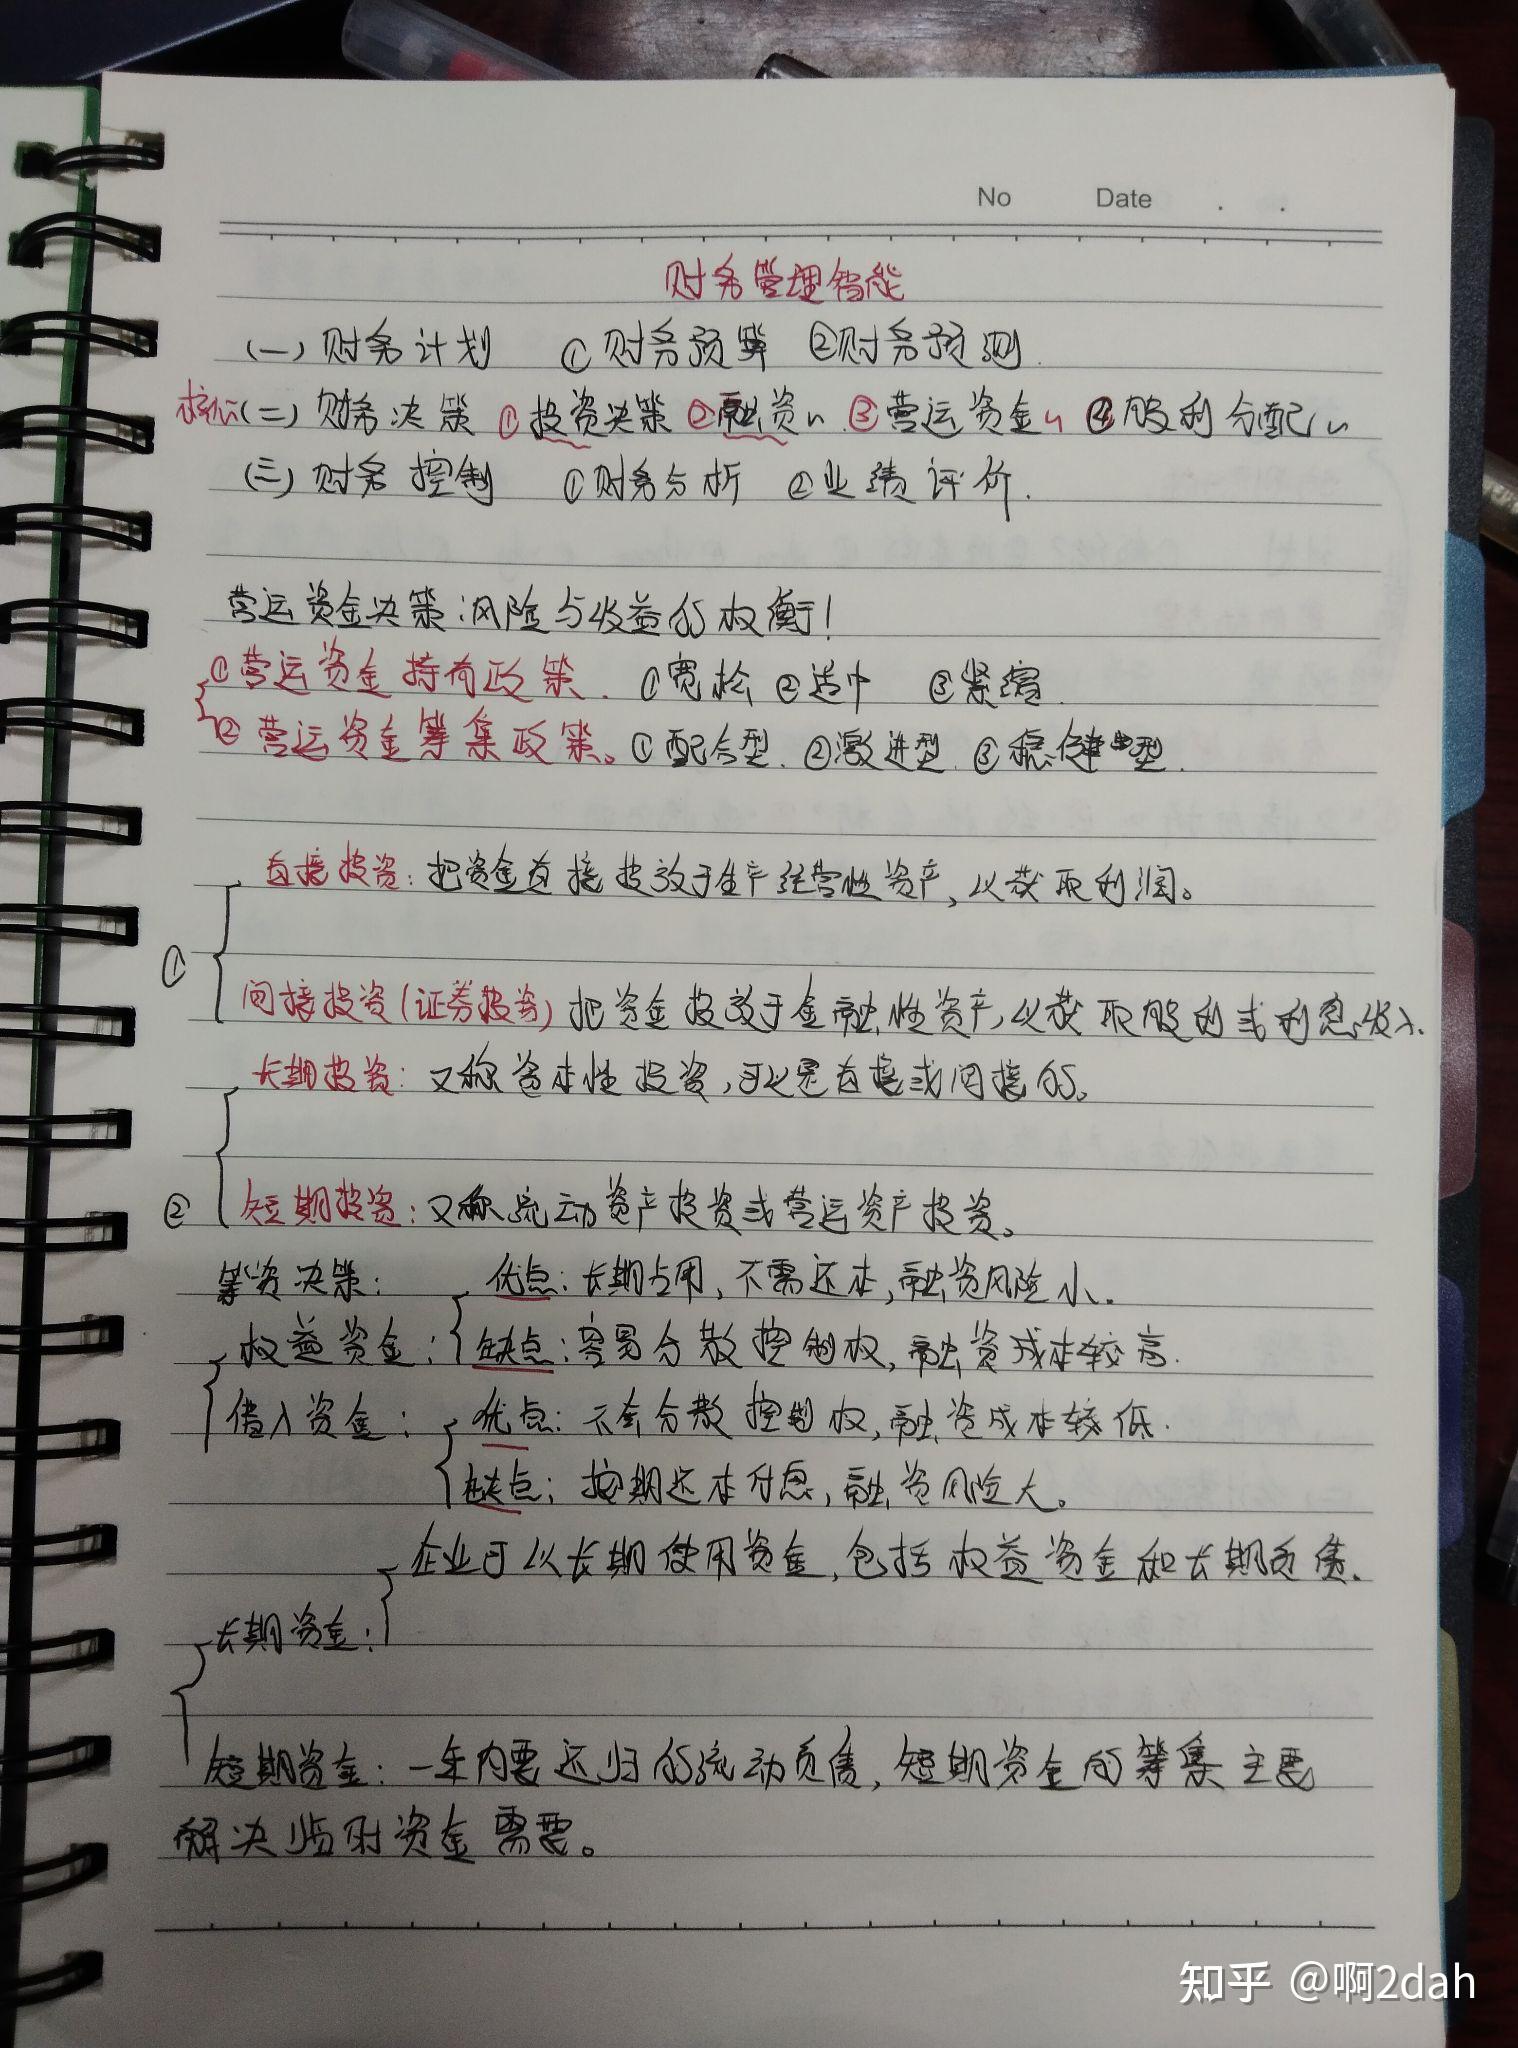 No Date . .
财务管理职能
(一) 财务计划 ①财务预算 ②财务预测.
核心(二) 财务决策 ①投资决策 ②融资〃 ③营运资金〃 ④股利分配〃
(三) 财务控制 ①财务分析 ②业绩评价.
营运资金决策:风险与收益的权衡!
①营运资金持有政策. ①宽松 ②适中 ③紧缩.
②营运资金筹集政策。①配合型. ②激进型. ③稳健型.
直接投资:把资金直接投放于生产经营性资产,以获取利润。
①
间接投资(证券投资)把资金投放于金融性资产,以获取股利或利息收入.
长期投资:又称资本性投资,可以是直接或间接的。
② 短期投资:又称流动资产投资或营运资产投资。
筹资决策: 优点:长期占用,不需还本,融资风险小.
权益资金: 缺点:容易分散控制权,融资成本较高.
借入资金: 优点:不会分散控制权,融资成本较低.
缺点:按期还本付息,融资风险大。
企业可以长期使用资金,包括权益资金和长期负债.
长期资金:
短期资金:一年内要还归的流动负债,短期资金的筹集主要
解决临时资金需要。
知乎 @啊2dah